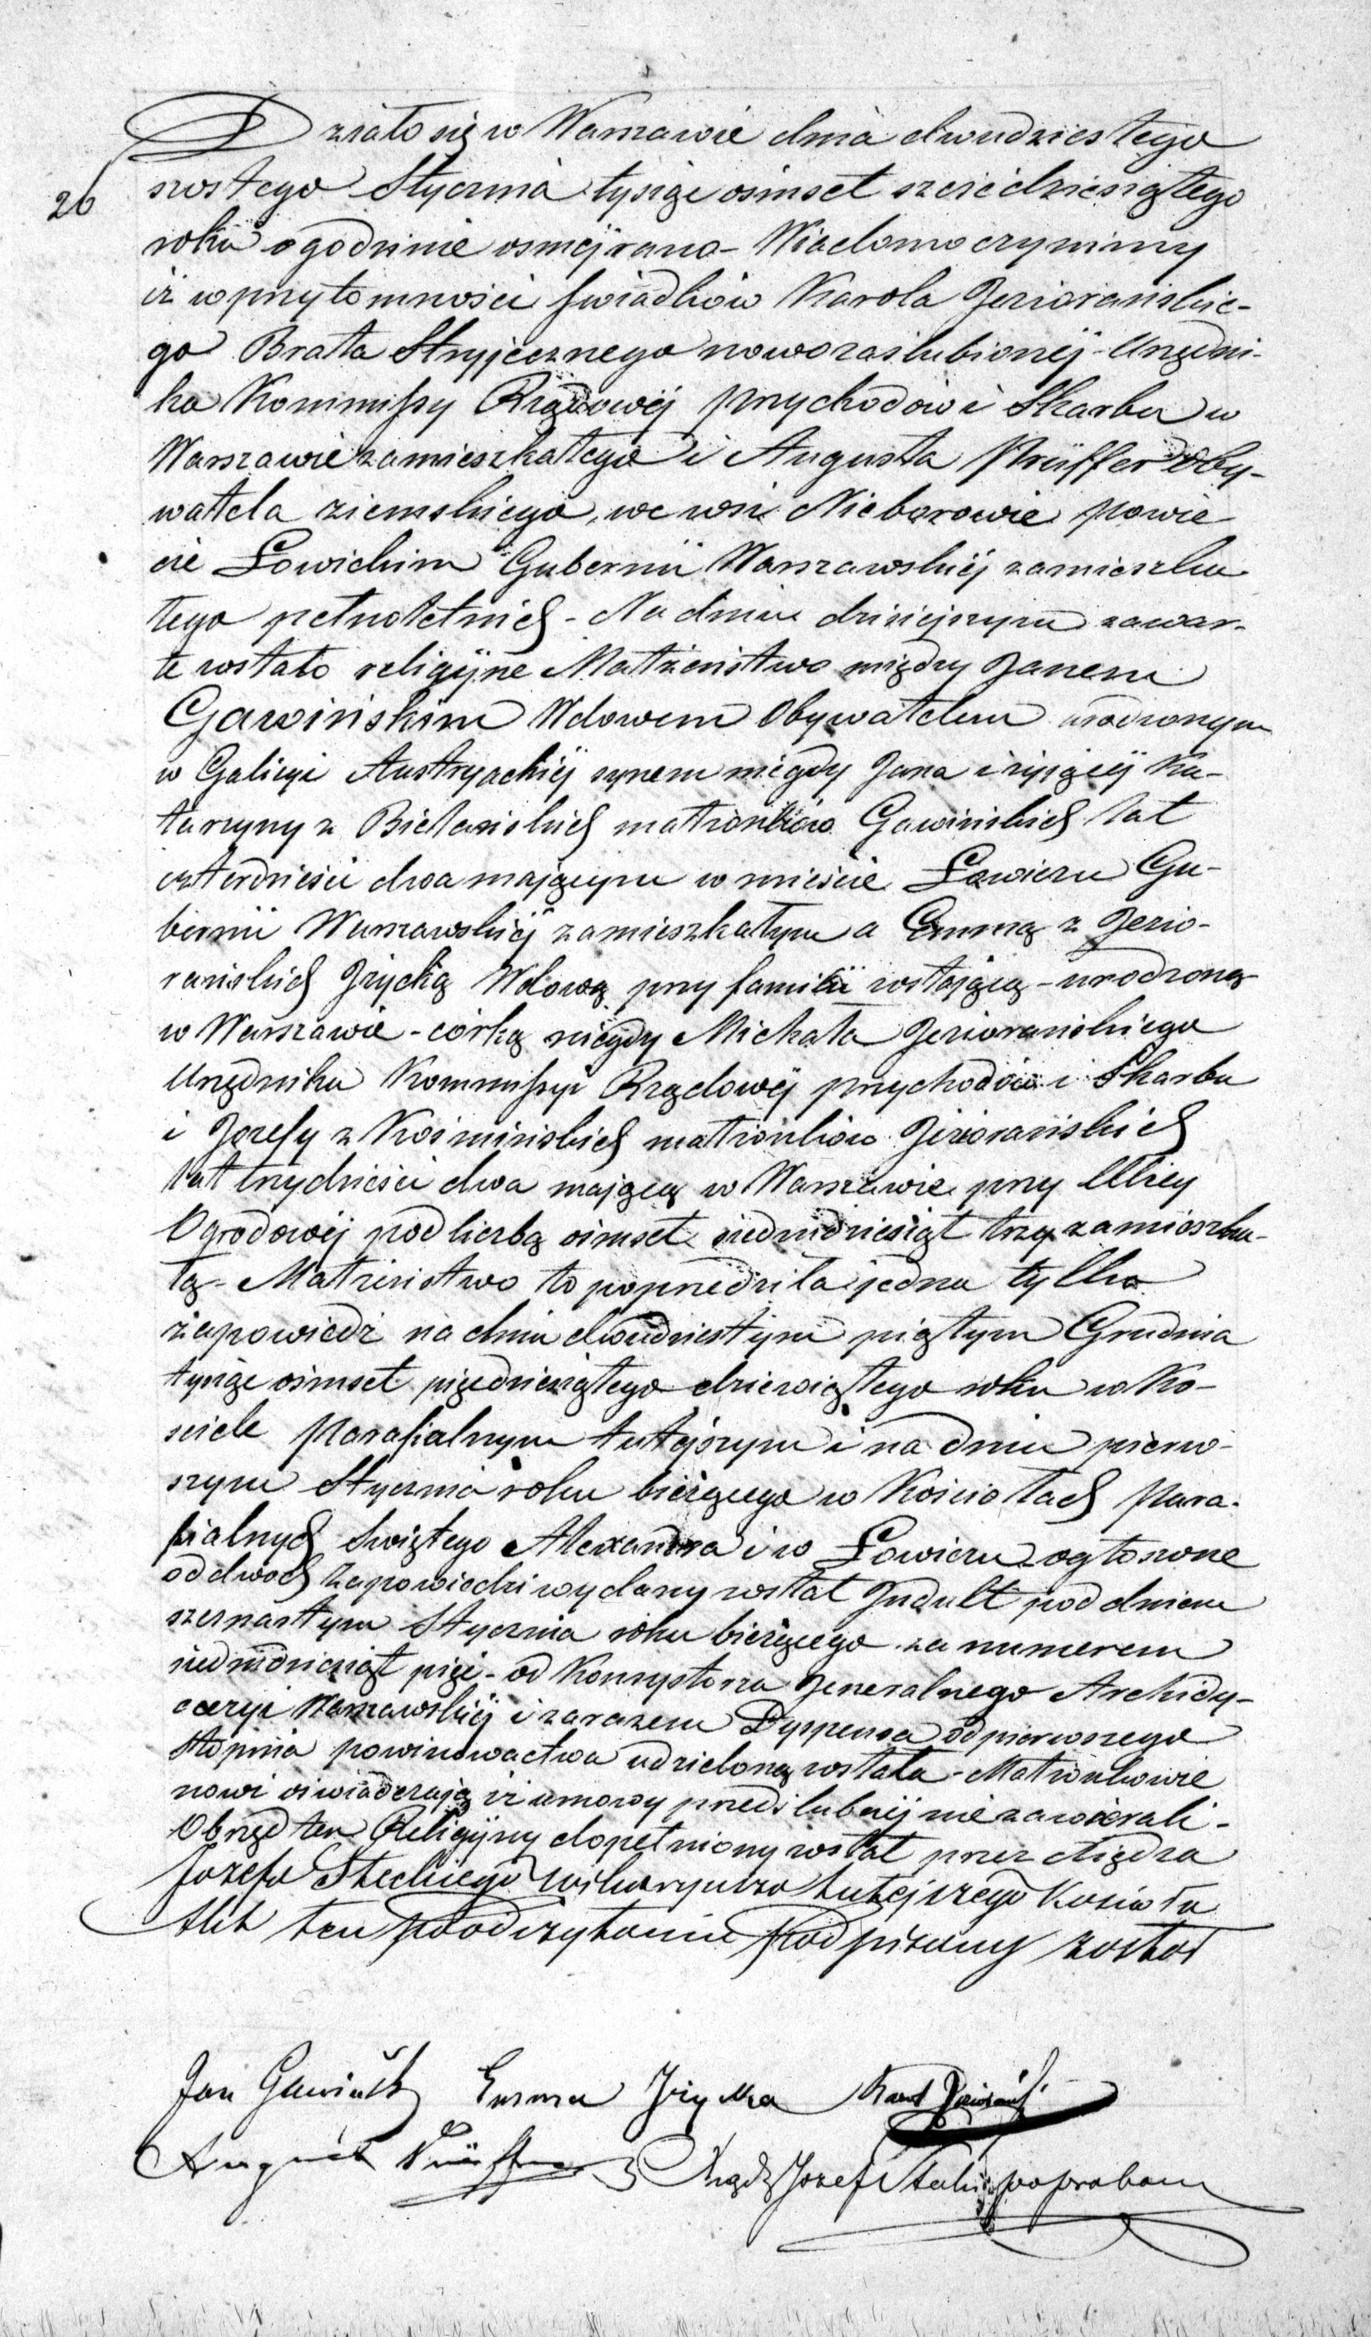 Działo się w Warszawie dnia dwudziestego
26
szóstego Stycznia tysiąc ośmset sześćdziesiątego
roku o godzinie osmej rano – Wiadomo czynimy
iż w przytomności świadków Karola Jeziorańskie-
go Brata Stryjecznego nowozaślubionej – Urzędni-
ka Kommissyi Rządowej przychodów i Skarbu w
Warszawie zamieszkałego i Augusta Prüffer Oby-
watela ziemskiego, we wsi Nieborowie powie
cie Łowickim Gubernii Warszawskiej zamieszka
łego pełnoletnich – Na dniu dzisiejszym zawar-
te zostało religijne Małżeństwo między Janem
Gawińskim Wdowcem Obywatelem urodzonym
w Galicyi Austryackiej synem niegdy Jana i żyjącej Ka-
tarzyny z Bielańskich małżonków Gawińskich lat
czterdzieści dwa mającym w mieście Łowiczu Gu-
bernii Warszawskiej zamieszkałym a Emmą z Jezio-
rańskich Jżycką Wdową przy familii zostającą – urodzoną
w Warszawie – córką niegdy Michała Jeziorańskiego
Urzędnika Kommissyi Rządowej przychodów i Skarbu
i Józefy z Koźmińskich małżonków Jeziorańskich
lat trzydzieści dwa mającą w Warszawie przy Ulicy
Ogrodowej pod liczbą ośmset siedmdziesiąt trzy zamieszka-
łą – Małżeństwo to poprzedziła jedna tylko
zapowiedź na dniu dwudziestym piątym Grudnia
tysiąc ośmset pięćdziesiątego dziewiątego roku w Ko-
sciele Parafialnym tutejszym i na dniu pierw-
szym Stycznia roku bieżącego w Kościołach Para-
fialnych Świętego Alexandra i w Łowiczu ogłoszone
od dwoch zapowiedzi wydany został Jndult pod dniem
szesnastym Stycznia roku bieżącego za numerem
siedmdziesiąt pięć – od Konsystorza Jeneralnego Archidy-
ecezyi Warszawskiej i zarazem Dyspensa od pierwszego
stopnia powinowactwa udzieloną została – Małżonkowie
nowi oświadczają iż umowy przedślubnej nie zawierali –
Obrzęd ten Religijny dopełniony został przez Xiędza
Józefa Steckiego Wikaryusza tutejszego Koscioła
Akt ten po odczytaniu podpisany został
Jan Gawiński Emma Jżycka Karol Jeziorański
August Prüffer Xiądz Józef Stecki